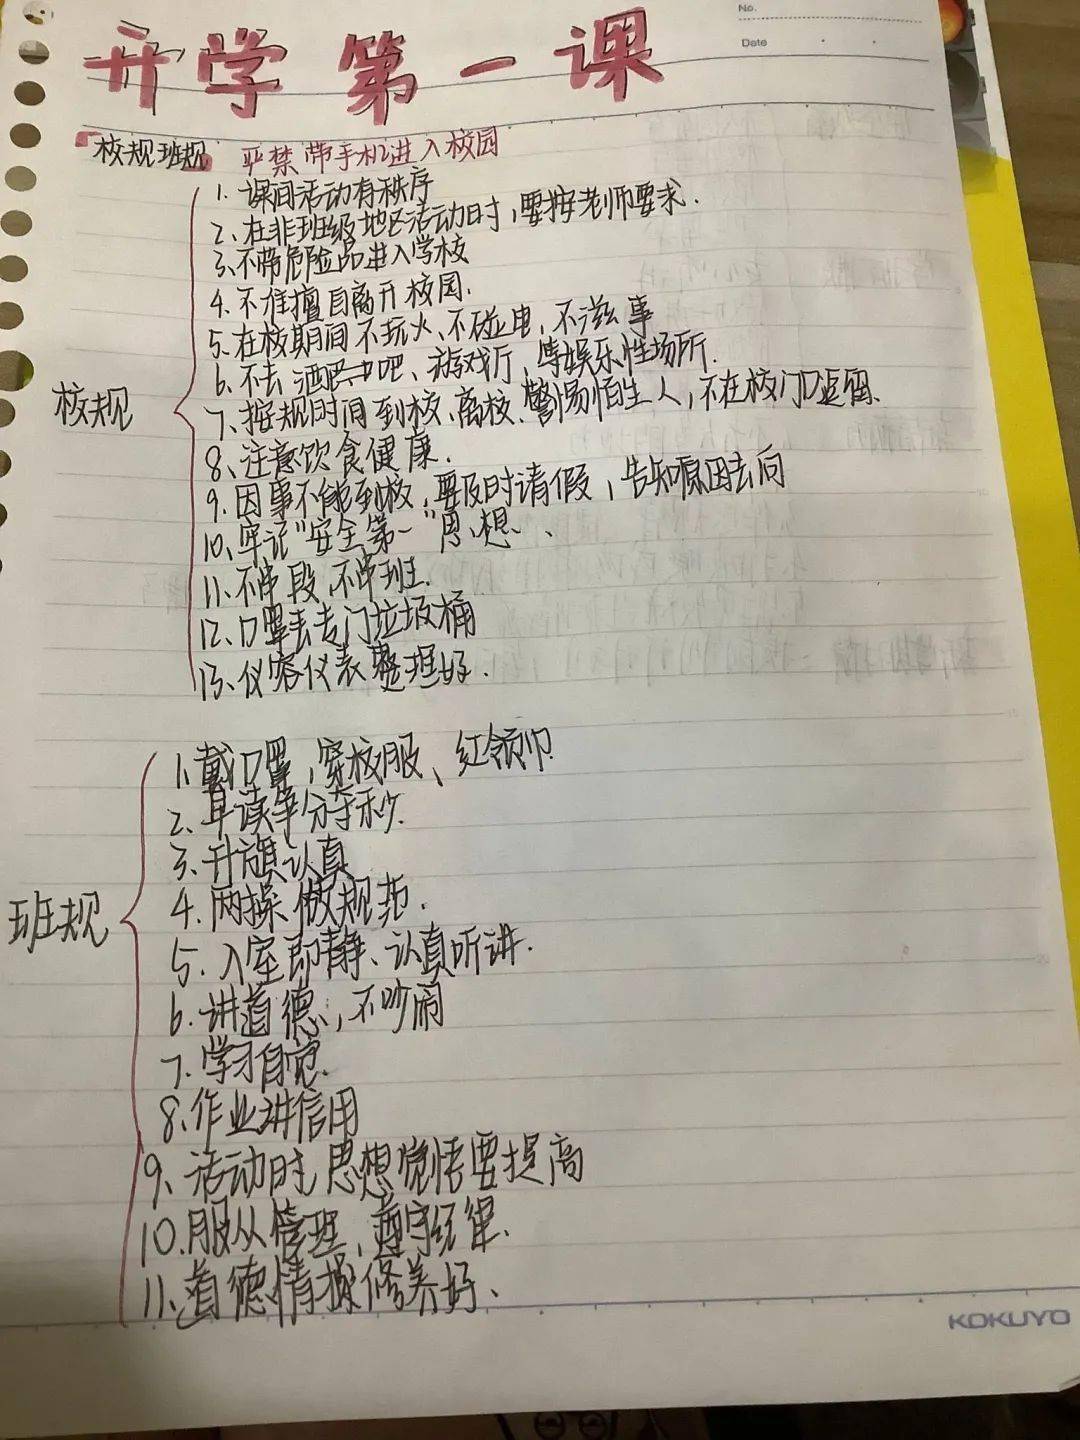 No.
Date
开学第一课
校规班规 严禁带手机进入校园
1. 课间活动有秩序
2、在非班级地区活动时，要按老师要求.
3.不带危险品进入学校
4.不准擅自离开校园.
校规
5、在校期间不玩火、不碰电、不滋事
6.不去酒吧、游戏厅，等娱乐性场所.
7、按规时间到校、离校、警惕陌生人，不在校门口逗留.
8、注意饮食健康.
9、因事不能到校，要及时请假，告知原因去向
10、牢记“安全第一”思想、
11、不串段，不串班.
12、口罩丢专门垃圾桶
13、仪容仪表整理好.
班规
1、戴口罩，穿校服、红领巾
2、早读争分夺秒.
3、升旗认真
4、两操做规范.
5、入室即静、认真听讲.
6、讲道德，不吵闹
7、学习自觉.
8、作业讲信用
9、活动时，思想觉悟要提高
10.服从管理，遵守纪律.
11、道德情操修养好、
KOKUYO